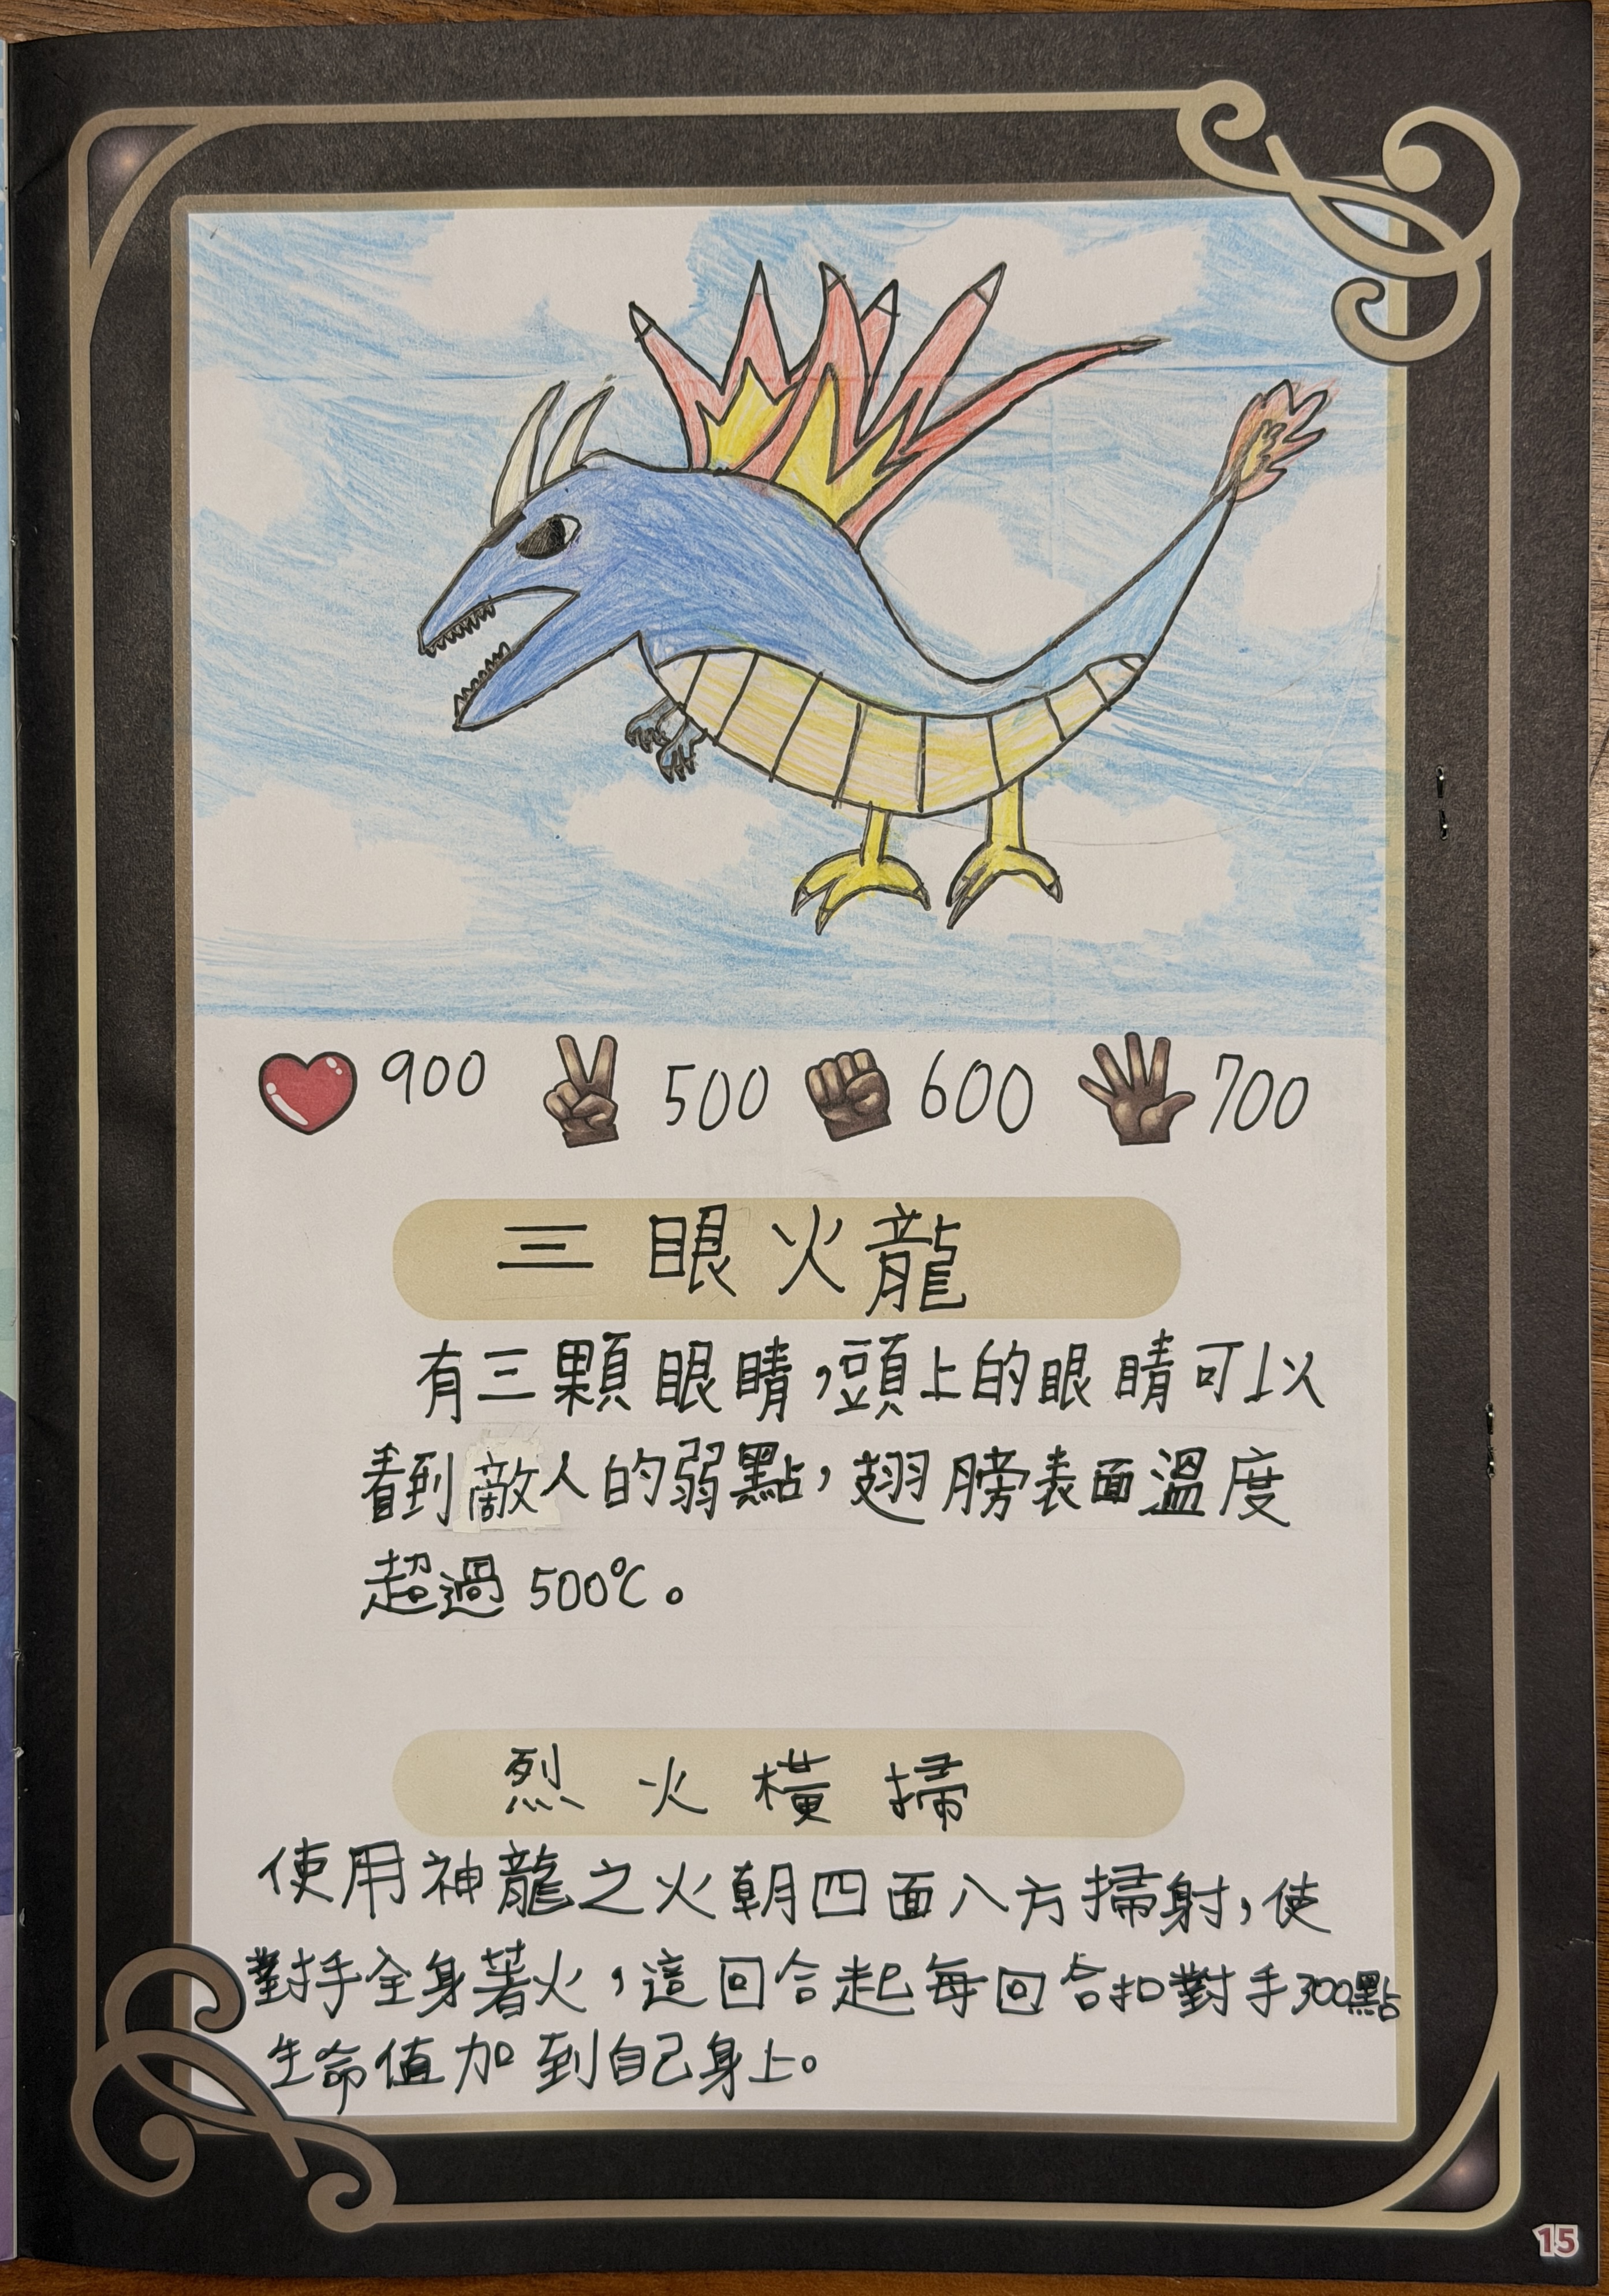 900 500 600 700
三眼火龍
有三顆眼睛，頭上的眼睛可以
看到敵人的弱點，翅膀表面溫度
超過500℃。
烈火橫掃
使用神龍之火朝四面八方掃射，使
對手全身著火，這回合起每回合扣對手300點
生命值加到自己身上。
15